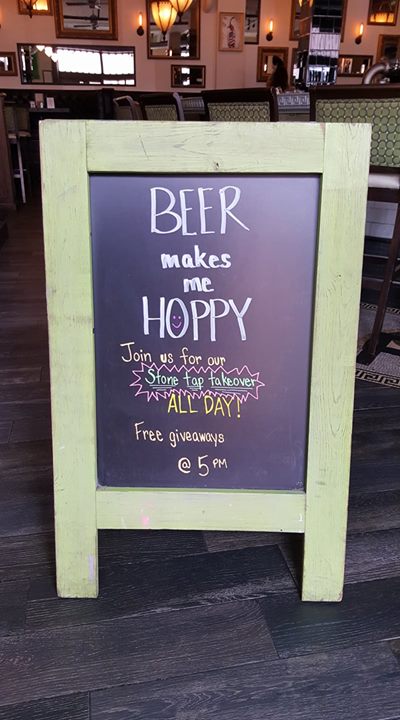 BEER
makes
me
HOPPY
Join us for our
Stone tap takeover
ALL DAY!
Free giveaways
@ 5 PM